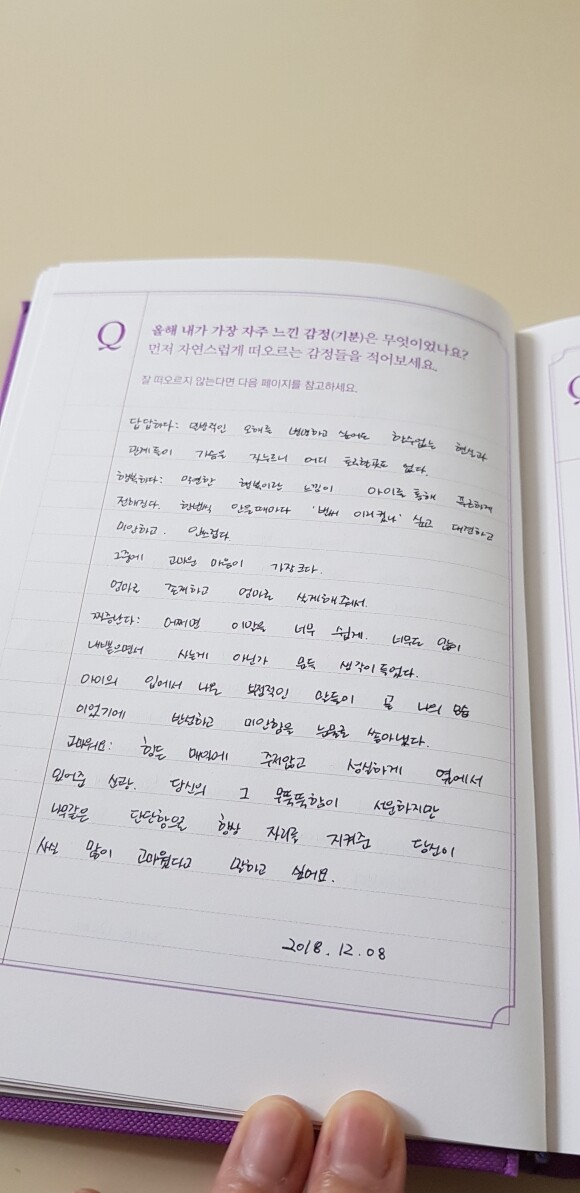 Q
올해 내가 가장 자주 느낀 감정(기분)은 무엇이었나요?
먼저 자연스럽게 떠오르는 감정들을 적어보세요.
잘 떠오르지 않는다면 다음 페이지를 참고하세요.
답답하다: 오해를 변명하고 싶어도 할수없는 현실과
관계들이 가슴을 짓누르니 어디 없다.
행복하다: 막연한 행복이란 느낌이 아이를 통해 푸근하게
전해진다. 한번씩 안을때마다 '벌써 이리컸나' 싶고 대견하고
미안하고. 안쓰럽다.
그중에 고마운 마음이 가장크다.
엄마로 존재하고 엄마로 살게해줘서.
짜증난다: 어쩌면 이말을 너무 쉽게. 너무도 많이
내뱉으면서 사는게 아닌가 문득 생각이 들었다.
아이의 입에서 나온 부정적인 말들이 곧 나의 모습
이었기에 반성하고 미안함을 눈물로 쏟아냈다.
고마워요: 힘든 매일에 주저않고 성실하게 옆에서
있어준 신랑. 당신의 그 무뚝뚝함이 서운하지만
나무같은 단단함으로 항상 자리를 지켜준 당신이
사실 많이 고마웠다고 말하고 싶어요.
2018.12.08